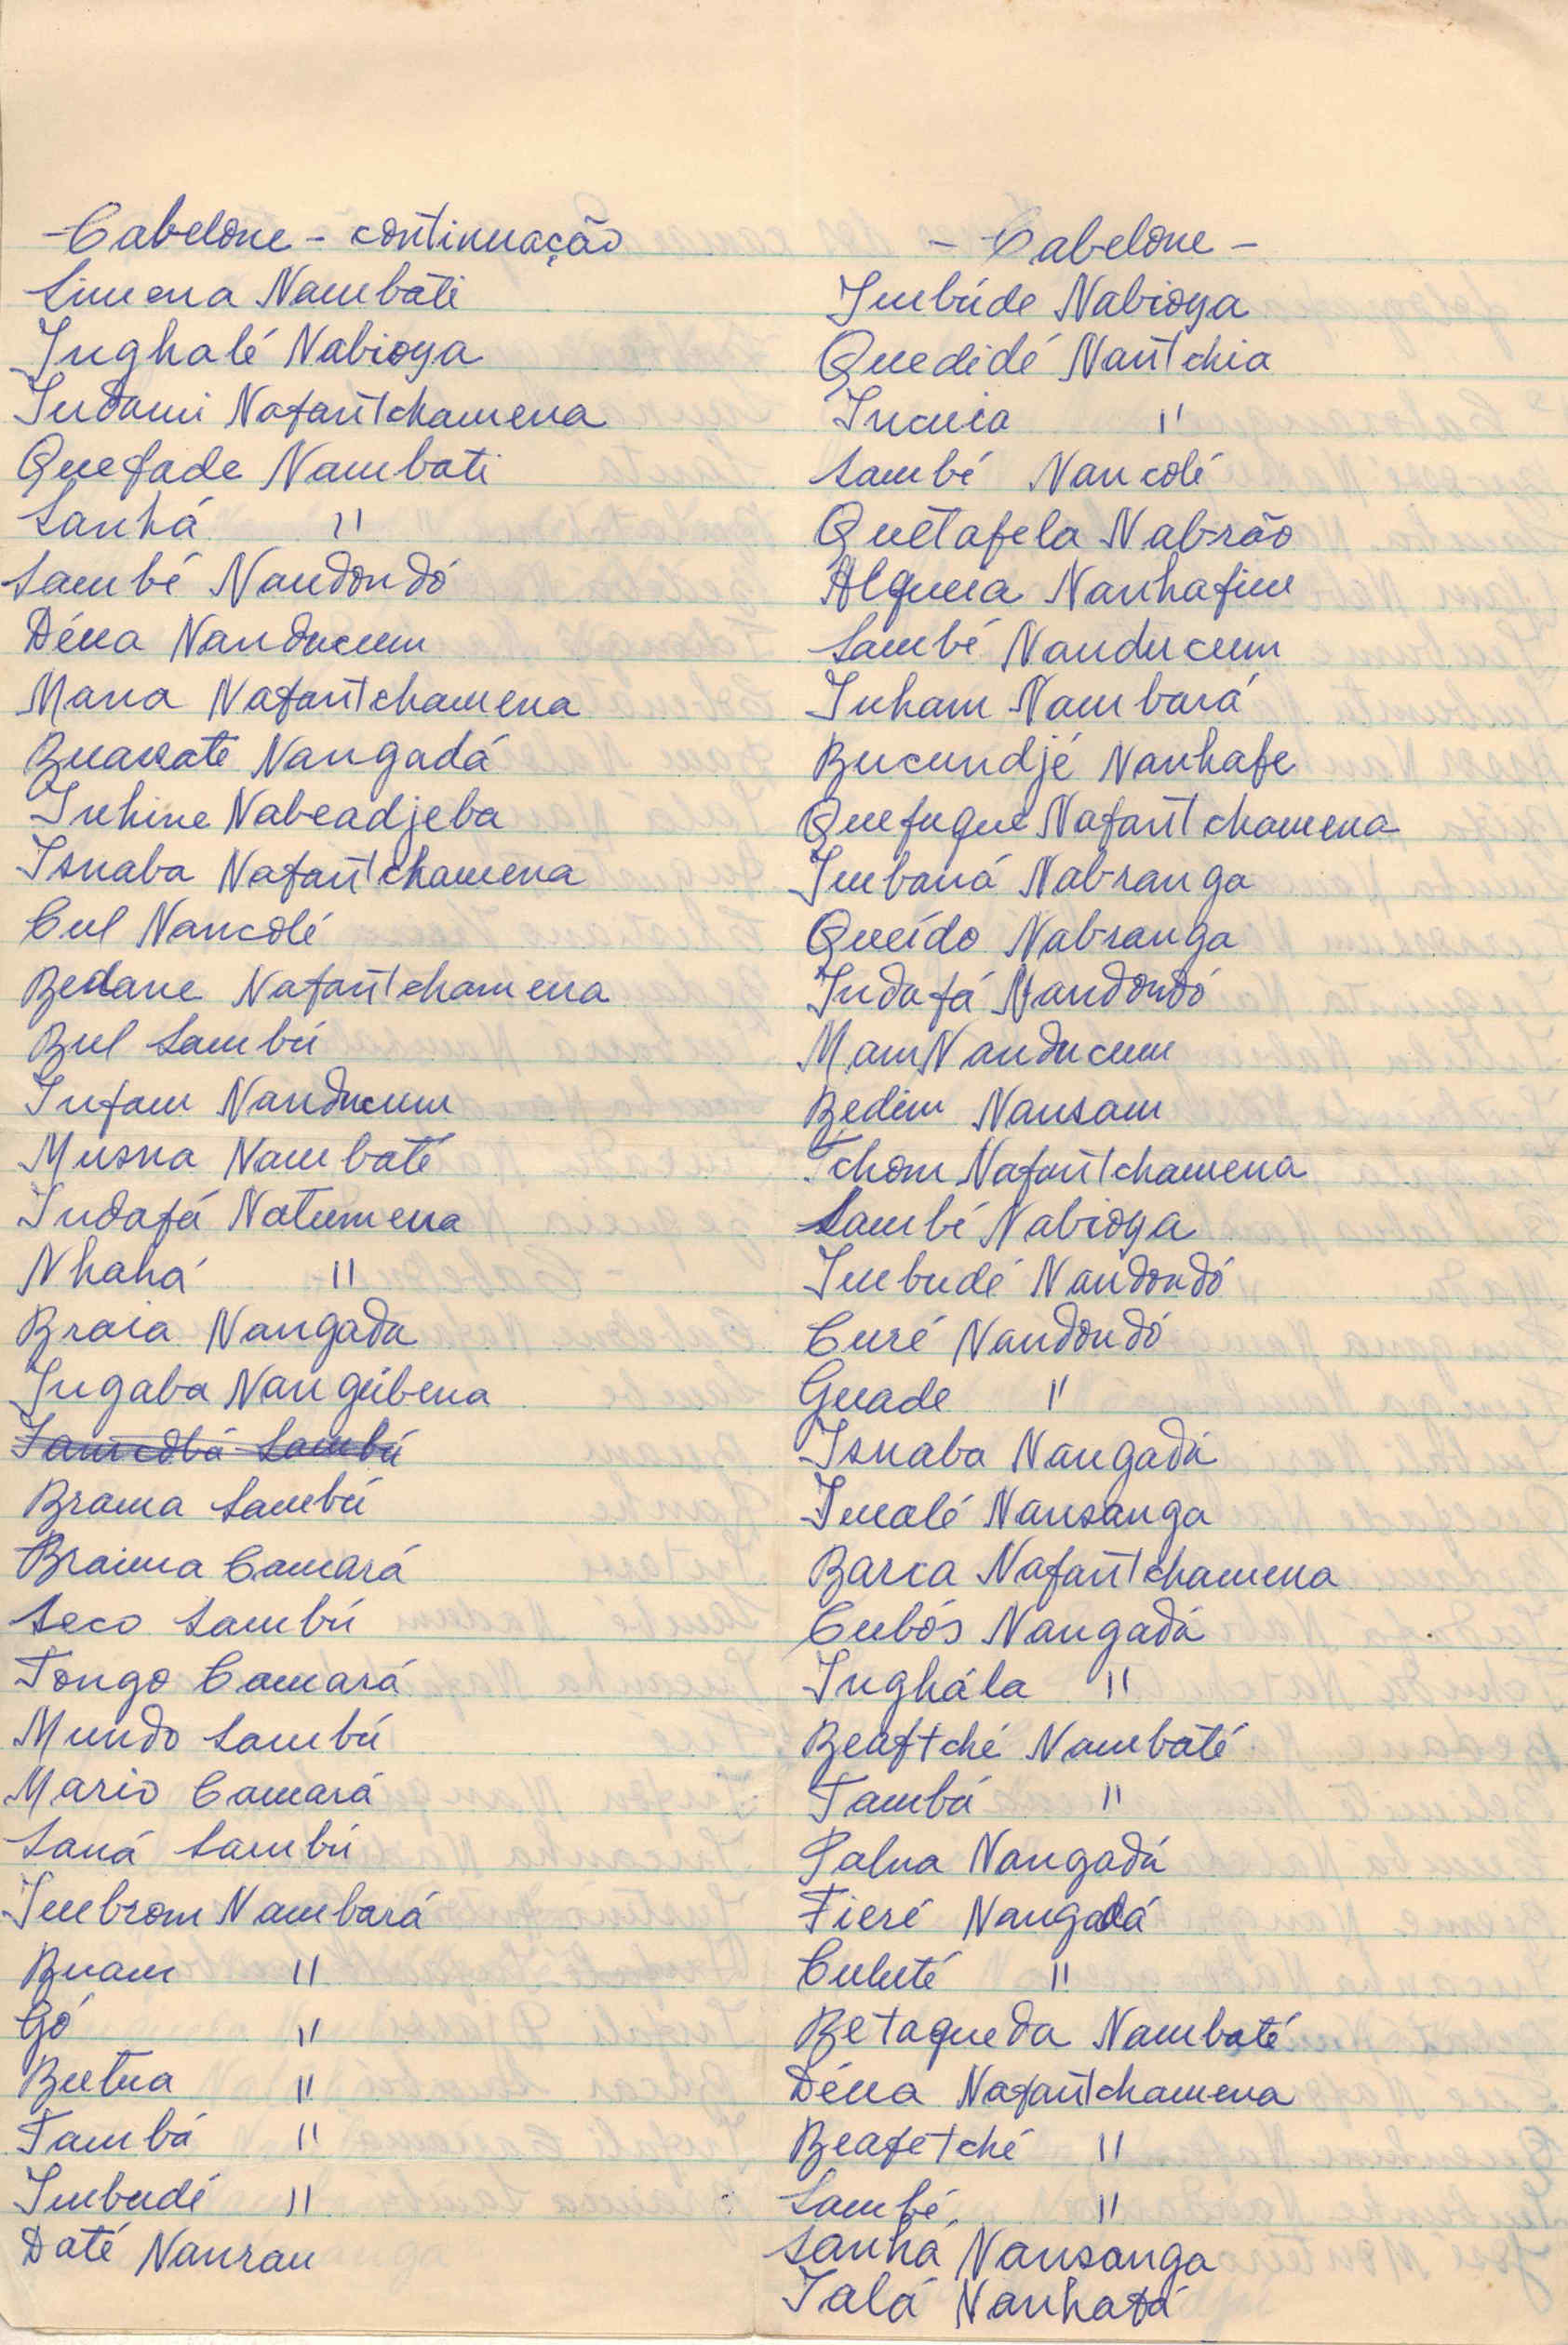 - Cabelone - continuação
Simena Nambáti
Inghalé Nabioya
Indami Nafantchamena
Quefade Nambati
Sanhá "
Sambé Nandondó
Déna Nanducum
Mana Nafantchamena
Buawate Nangadá
Inhine Nabeadjeba
Isnaba Nafantchamena
Cul Nancolé
Bedane Nafantchamena
Bul Sambú
Infam Nanducum
Musna Nambaté
Indafá Natumena
Nhahá "
Braia Nangada
Ingaba Nangúbena
Brama Sambú
Braima Camará
Seco Sambú
Tongo Camará
Mundo Sambú
Mario Camará
Saná Sambú
Imbrom Nambará
Buam "
Gó "
Butna "
Tambá "
Imbudé "
Daté Nanrau
- Cabelone -
Imbúde Nabioya
Quedidé Nantchia
Incuia "
Sambé Nancolé
Quétafela Nabrão
Alquma Nanhafim
Sambé Nanducum
Inham Nambará
Bucundjé Nanhafe
Quefuque Nafantchamena
Imbaná Nabranga
Queído Nabranga
Indafá Nandondó
Mam Nanducum
Bedim Nansam
Tchom Nafantchamena
Sambé Nabioya
Imbudé Nandondó
Curé Nandondó
Guade "
Isnaba Nangadá
Imalé Nansanga
Barca Nafantchamena
Cubós Nangadá
Inghála "
Beaftché Nambaté
Tambá "
Palna Nangadá
Fieré Nangadá
Culuté "
Betaqueda Nambaté
Déna Nafantchamena
Beafetché "
Sambé "
Sanhá Nansanga
Ialá Nanhafá